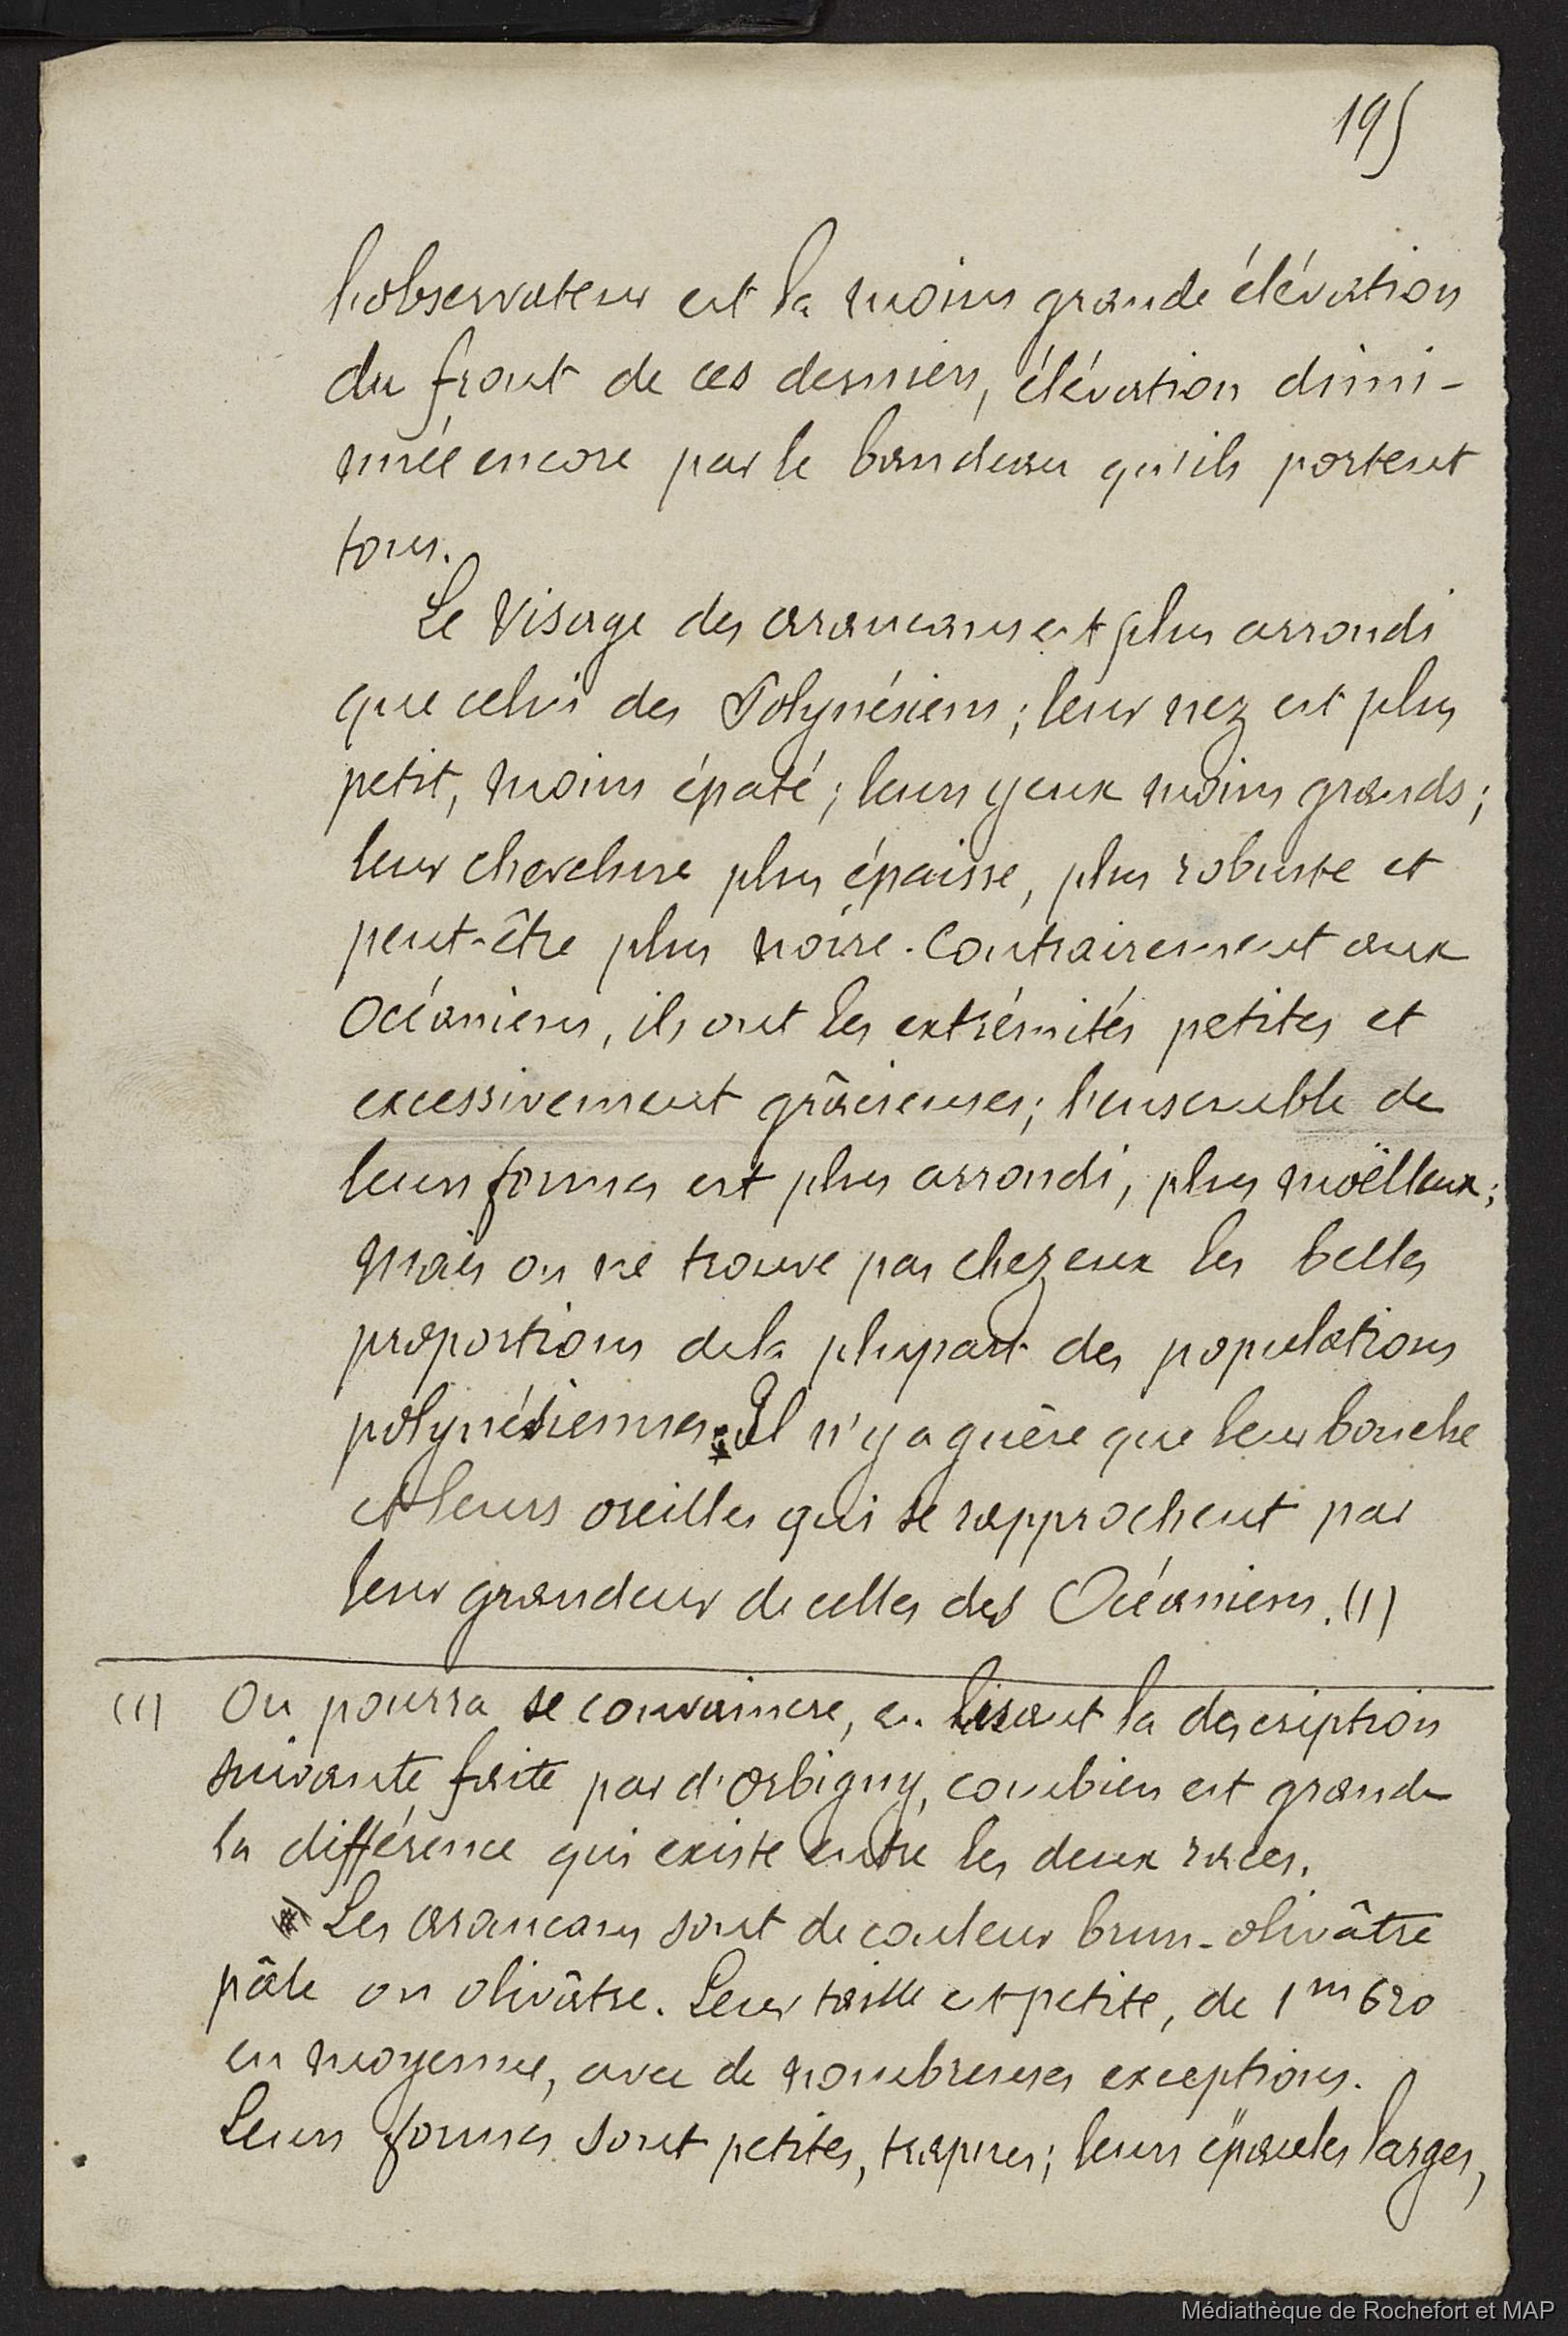 195
l'observateur est la moins grande élévation
du front de ces derniers, élévation dimi-
nuée encore par le bandeau qu'ils portent
tous.
Le visage des araucans est plus arrondi
que celui des Polynésiens; leur nez est plus
petit, moins épaté; leurs yeux moins grands;
leur chevelure plus épaisse, plus robuste et
peut-être plus noire. Contrairement aux
Océaniens, ils ont les extrémités petites et
excessivement grâcieuses; l'ensemble de
leurs formes est plus arrondi, plus moëlleux;
mais on ne trouve pas chez eux les belles
proportions de la plupart des populations
polynésiennes. Il n'y a guère que leur bouche
et leurs oreilles qui se rapprochent par
leur grandeur de celles des Océaniens. (1)
(1) On pourra se convaincre, en lisant la description
suivante faite par d'Orbigny, combien est grande
la différence qui existe entre les deux races.
Les araucans sont de couleur brun-olivâtre
pâle ou olivâtre. Leur taille est petite, de 1m 620
en moyenne, avec de nombreuses exceptions.
Leurs formes sont petites, trapues; leurs épaules larges,
Médiathèque de Rochefort et MAP